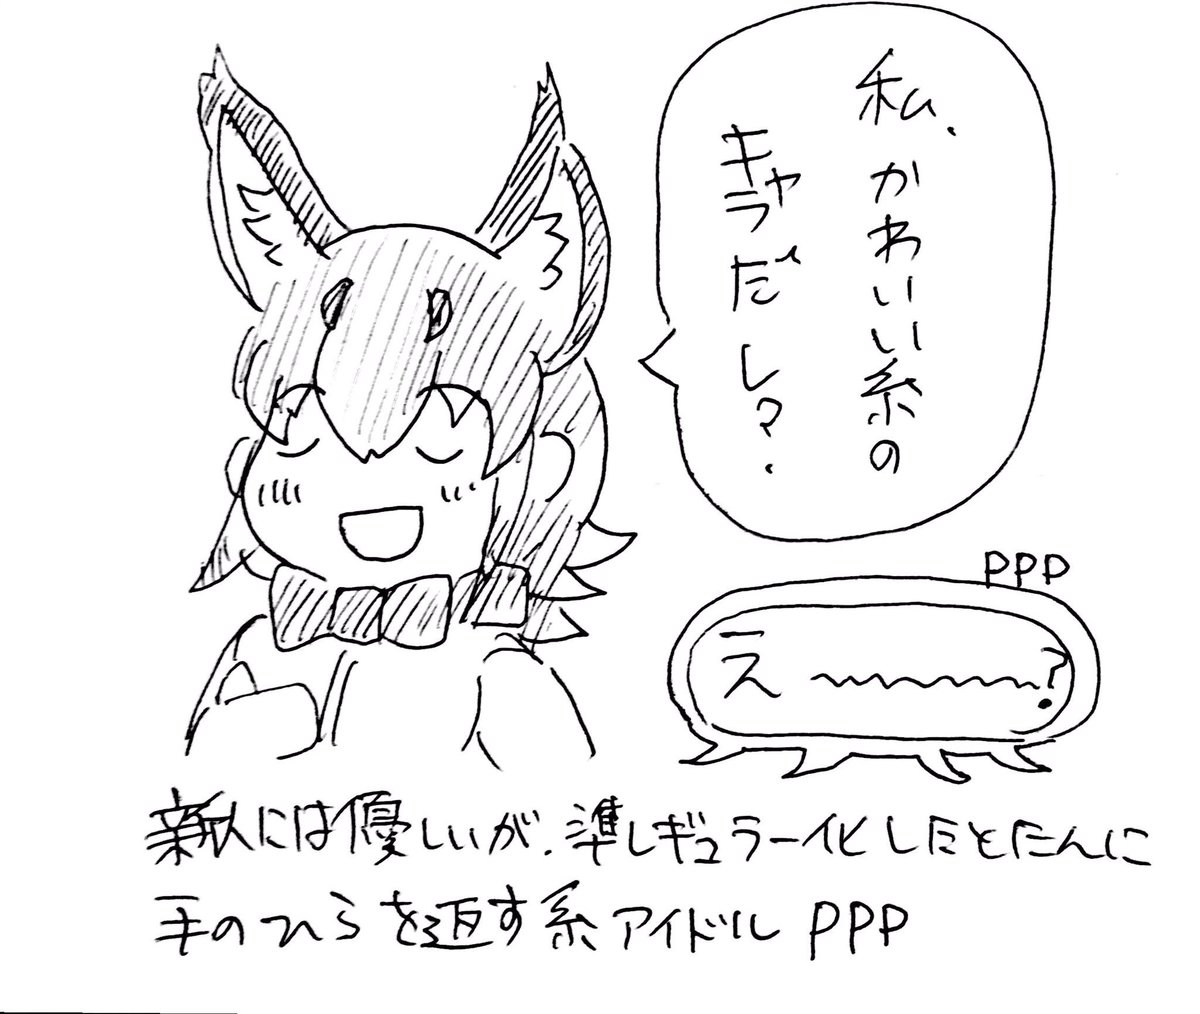 私、かわいい系の
キャラだし?
PPP
え〜〜〜〜〜?
新人には優しいが、準レギュラー化したとたんに
手のひらを返す系アイドルPPP